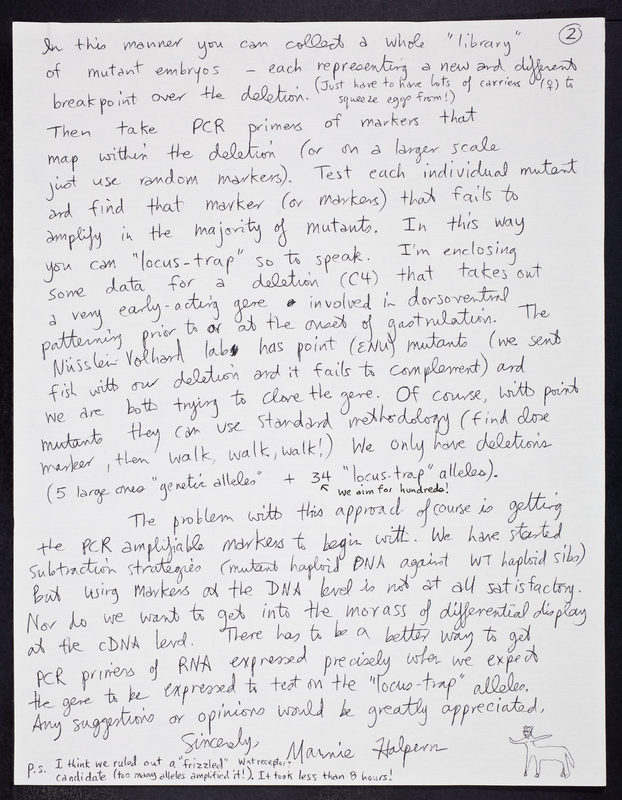 2
In this manner you can collect a whole "library"
of mutant embryos – each representing a new and different
breakpoint over the deletion. (Just have to have lots of carriers (♀) to
squeeze eggs from!)
Then take PCR primers of markers that
map within the deletion (or on a larger scale
just use random markers). Test each individual mutant
and find that marker (or markers) that fails to
amplify in the majority of mutants. In this way
you can "locus-trap" so to speak. I'm enclosing
some data for a deletion (C4) that takes out
a very early-acting gene involved in dorsoventral
patterning prior to or at the onset of gastrulation. The
Nüsslein-Volhard lab has point (ENU) mutants (we sent
fish with our deletion and it fails to complement) and
we are both trying to clone the gene. Of course, with point
mutants they can use standard methodology (find close
marker, then walk, walk, walk!) We only have deletions
(5 large ones "genetic alleles" + 34 "locus-trap" alleles).
↖ we aim for hundreds!
The problem with this approach of course is getting
the PCR amplifiable markers to begin with. We have started
subtraction strategies (mutant haploid DNA against WT haploid sibs)
but using markers at the DNA level is not at all satisfactory.
Nor do we want to get into the morass of differential display
at the cDNA level. There has to be a better way to get
PCR primers of RNA expressed precisely when we expect
the gene to be expressed to test on the "locus-trap" alleles.
Any suggestions or opinions would be greatly appreciated.
Sincerely, Marnie Halpern
P.S. I think we ruled out a "frizzled" Wnt receptor
candidate (too many alleles amplified it!). It took less than 8 hours!